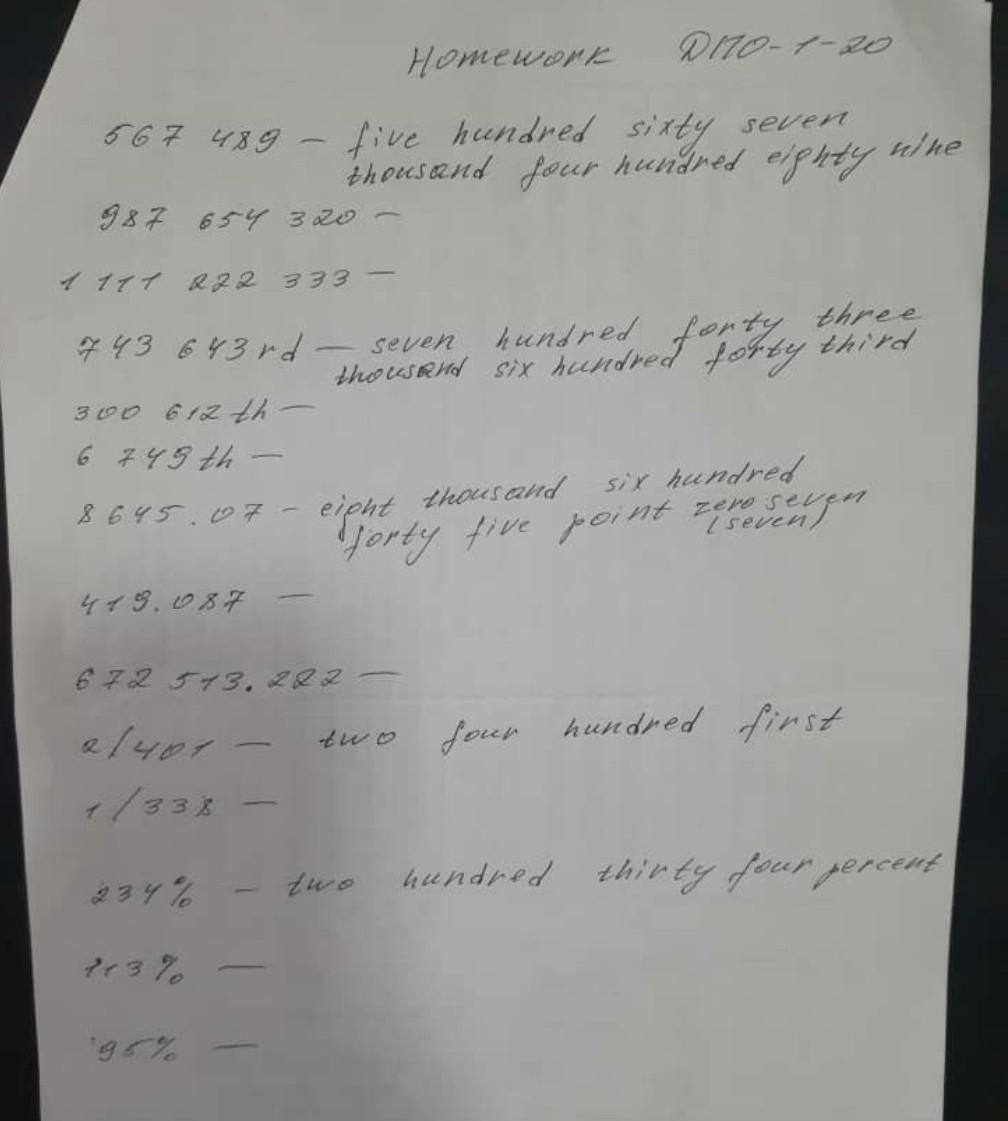 Homework ДПО-1-20
567 489 – five hundred sixty seven
thousand four hundred eighty nine
987 654 320 –
1 111 222 333 –
743 643rd – seven hundred forty three
thousand six hundred forty third
300 612th –
6 749th –
8645.07 – eight thousand six hundred
forty five point zero seven
(seven)
419.087 –
672 513.222 –
2/401 – two four hundred first
1/338 –
234% – two hundred thirty four percent
113% –
95% –